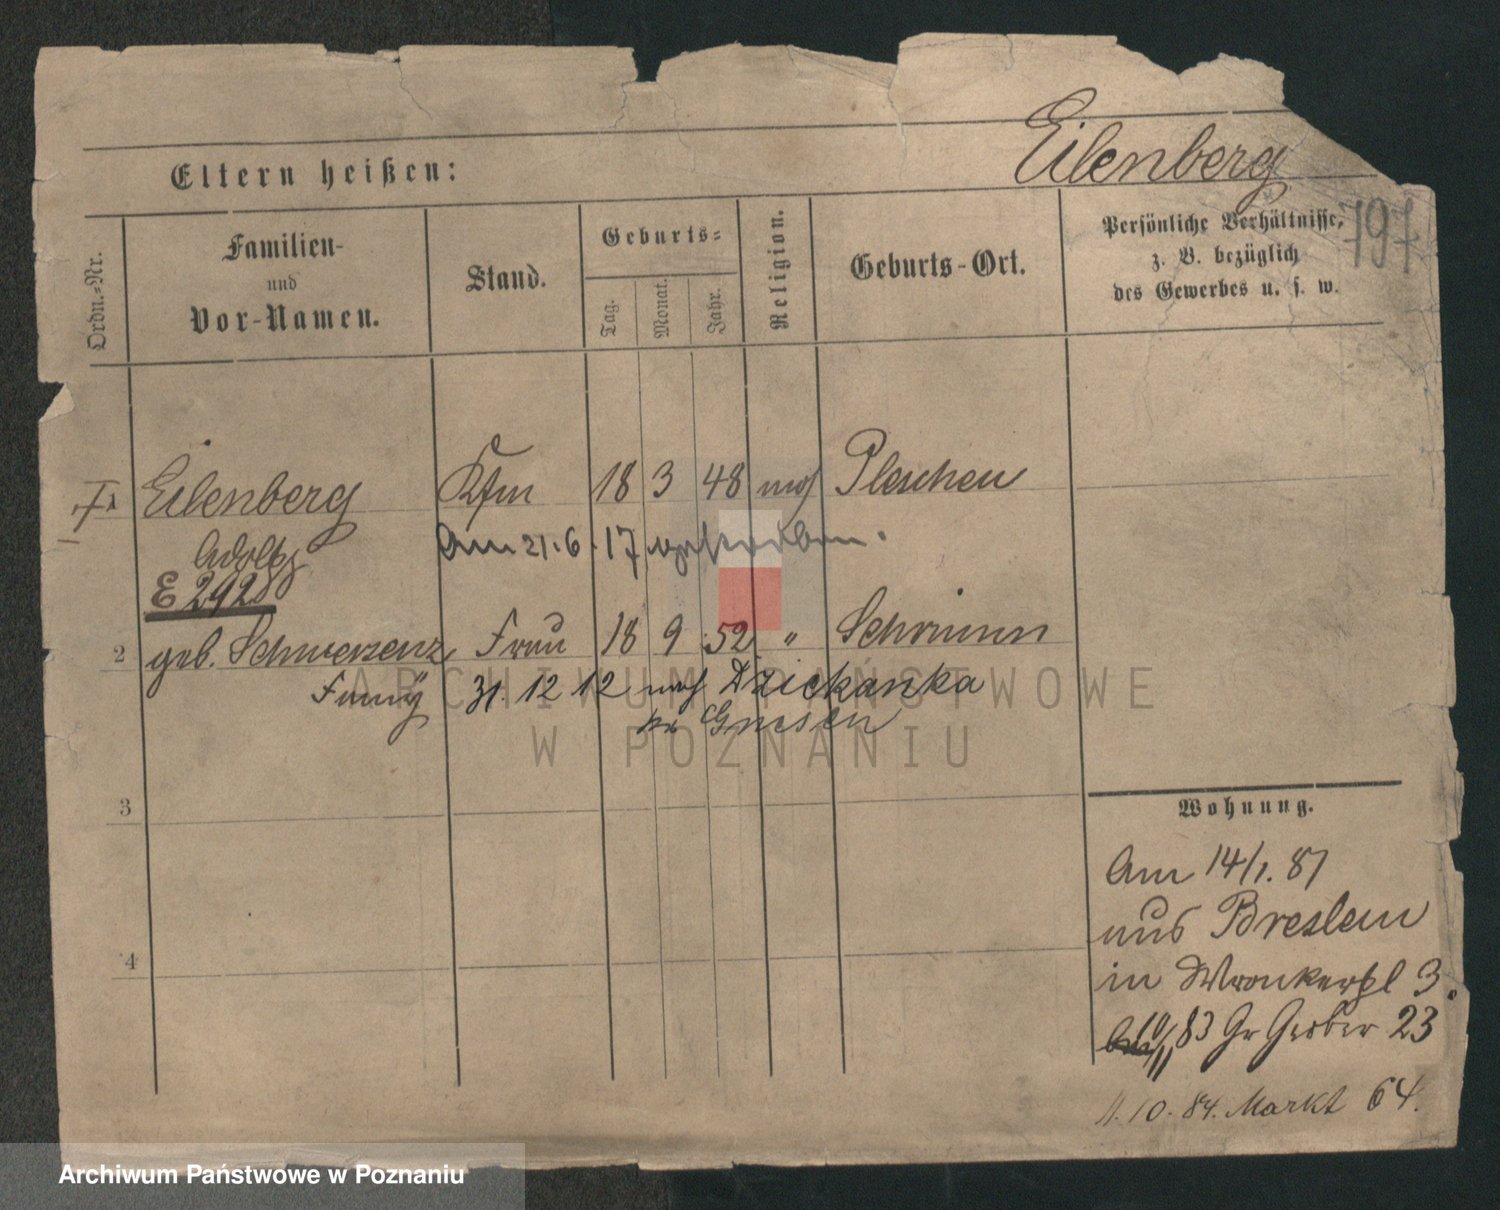 Eilenberg
Eltern heißen:
797
Ordn.-Nr.
Familien-
und
Vor-Namen.
Stand.
Geburts-
Tag.
Monat.
Jahr.
Religion.
Geburts-Ort.
Persönliche Verhältnisse,
z. B. bezüglich
des Gewerbes u. s. w.
Eilenberg Kfm 18 3 48 mos Pleschen
Adolf
Am 21.6.17 verstorben.
E 2928
2 geb. Schwersenz Frau 18 9 52 " Schrimm
Fanny 31.12 12 nach Dziekanka
bei Gnesen
3
4
Wohnung.
Am 14/1. 81
aus Breslau
in Wronkerpl 3.
10/11 83 Gr Gerber 23
11.10.84. Markt 64.
ARCHIWUM PAŃSTWOWE
W POZNANIU
Archiwum Państwowe w Poznaniu